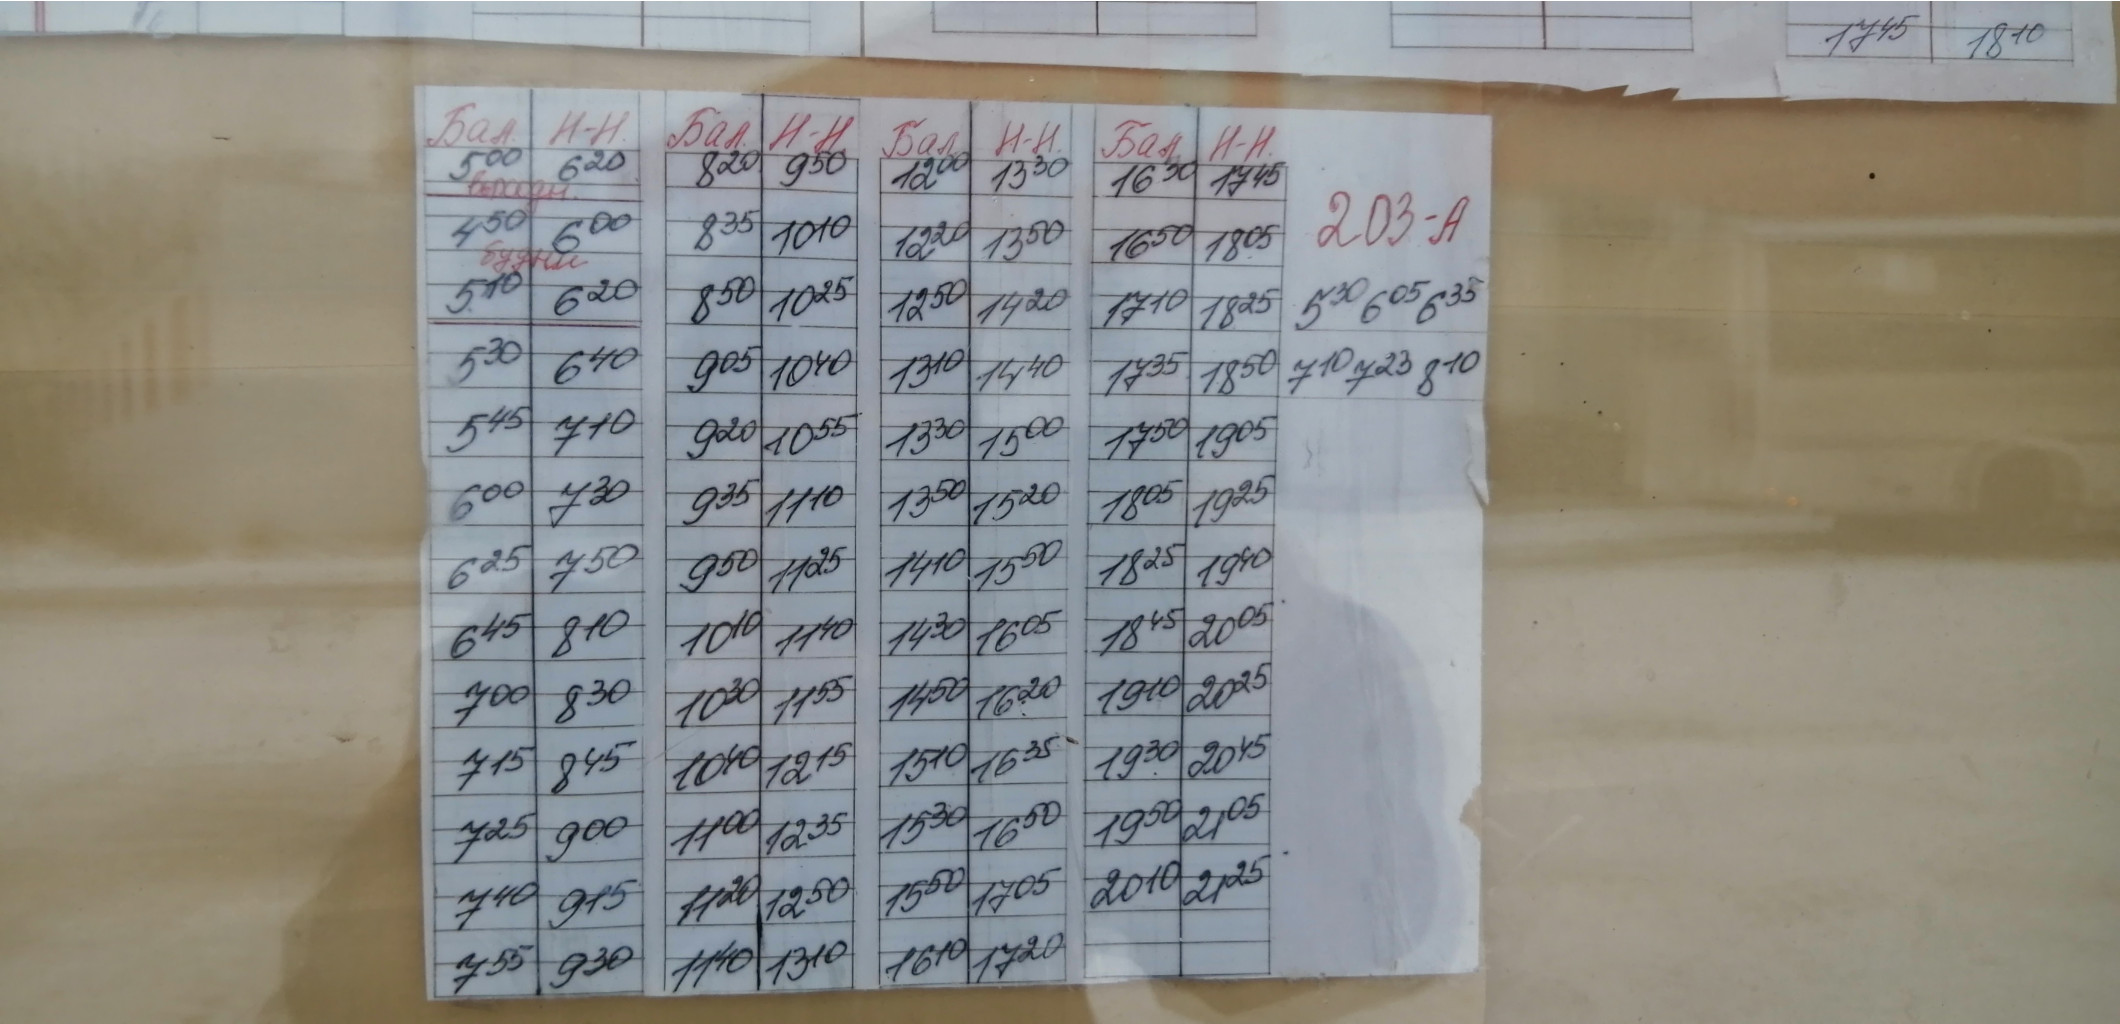 1745 1810
Бал. Н-Н. Бал. Н-Н Бал Н-Н. Бал. Н-Н.
500 620 820 950 1200 1330 1630 1745
выходн. 203-А
450 600 835 1010 1220 1350 1650 1805
будни
510 620 850 1025 1250 1420 1710 1825 530 605 635
530 640 905 1040 1310 1440 1735 1850 710 723 810
545 710 920 1055 1330 1500 1750 1905
600 730 935 1110 1350 1520 1805 1925
625 750 950 1125 1410 1550 1825 1940
645 810 1010 1140 1430 1605 1845 2005
700 830 1030 1155 1450 1620 1910 2025
715 845 1040 1215 1510 1635 1930 2045
725 900 1100 1235 1530 1650 1950 2105
740 915 1120 1250 1550 1705 2010 2125
755 930 1140 1310 1610 1720